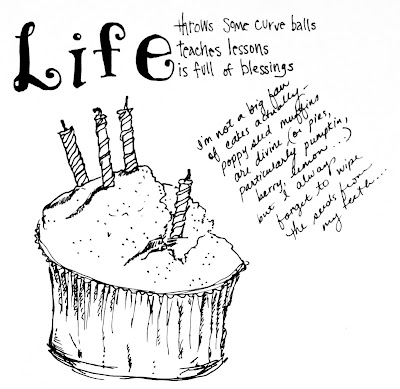 Life
throws some curve balls
teaches lessons
is full of blessings
I'm not a big fan
of cakes actually-
poppy seed muffins
are divine (or pies,
particularly pumpkin,
berry, lemon...)
but I always
forget to wipe
the seeds from
my teeth...